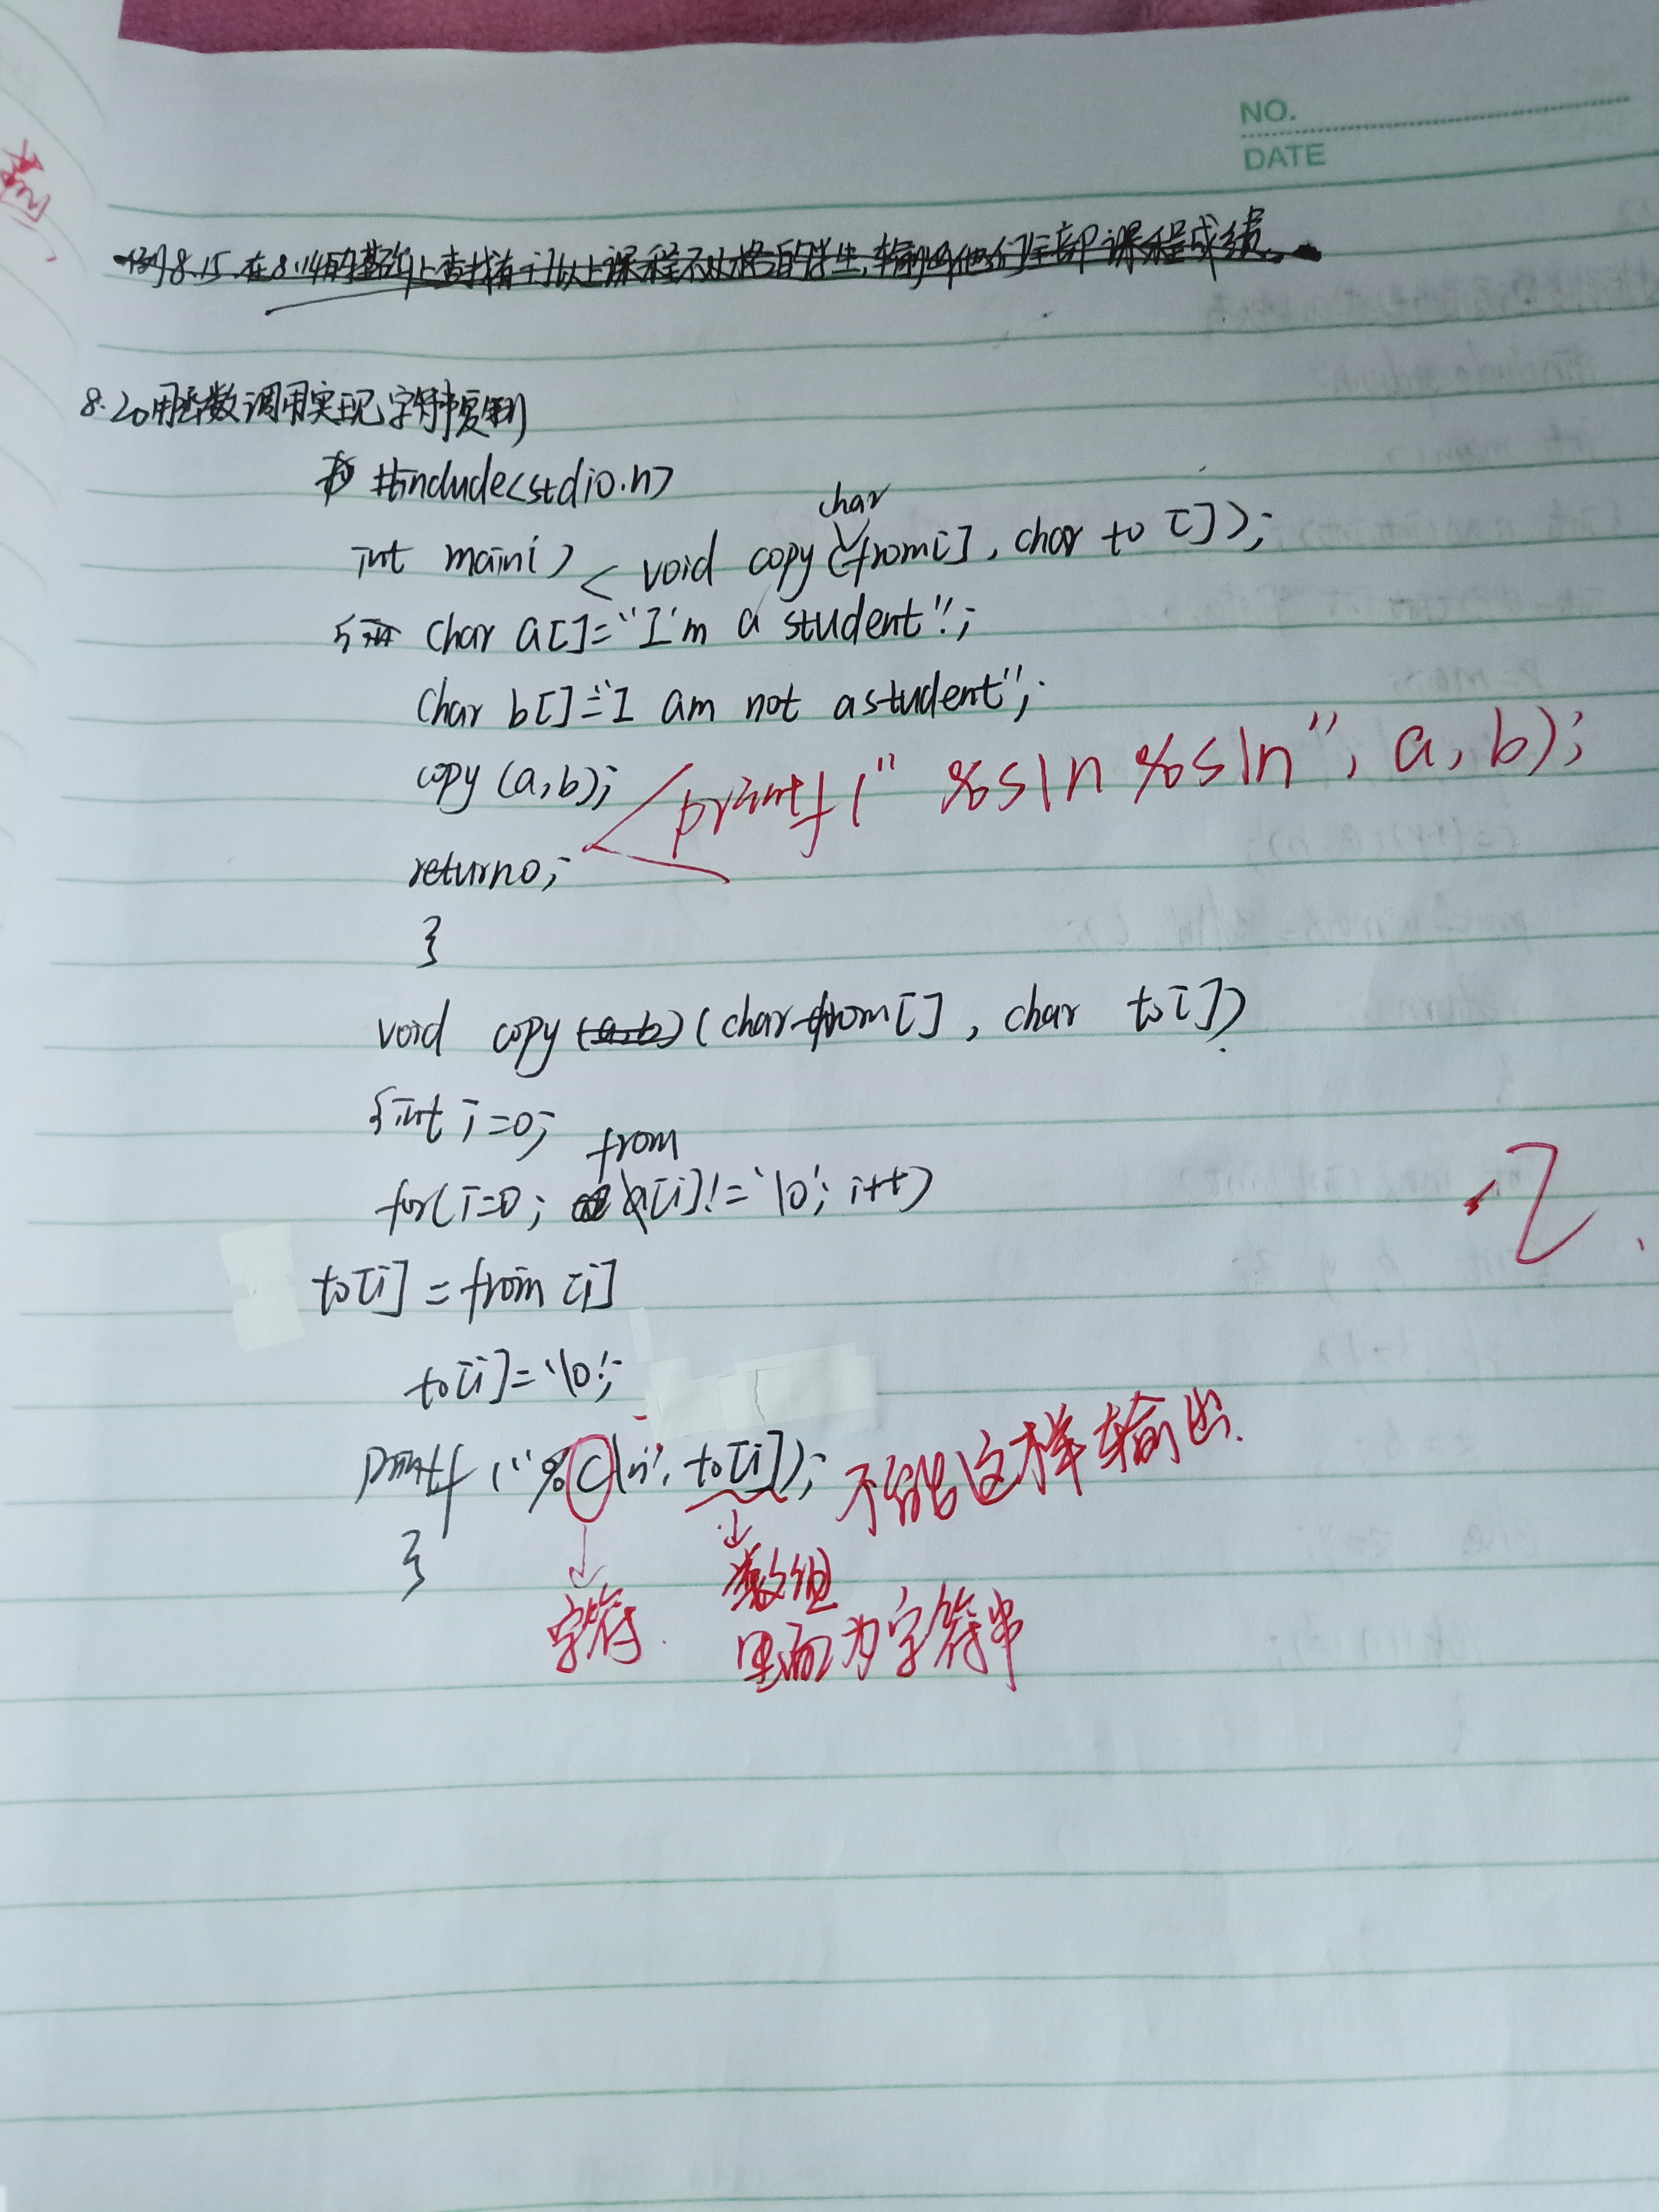 NO.
DATE
例8.15.在8.14的基础上查找有一门以上课程不及格的学生,输出他们全部课程成绩。
8.20用函数调用实现字符串复制
#include<stdio.h>
char
int main() < void copy(from[], char to []);
{ char a[]="I'm a student";
char b[]="I am not a student";
copy (a,b); printf(" %s\n %s\n", a, b);
return0;
}
void copy (a,b) (char from[], char to[])
{int i=0;
from
for(i=0; a[i]!='\0'; i++)
to[i] = from [i]
to[i]='\0';
printf ("%c\n", to[i]); 不能这样输出.
}
字符 数组
里面为字符串
-2.